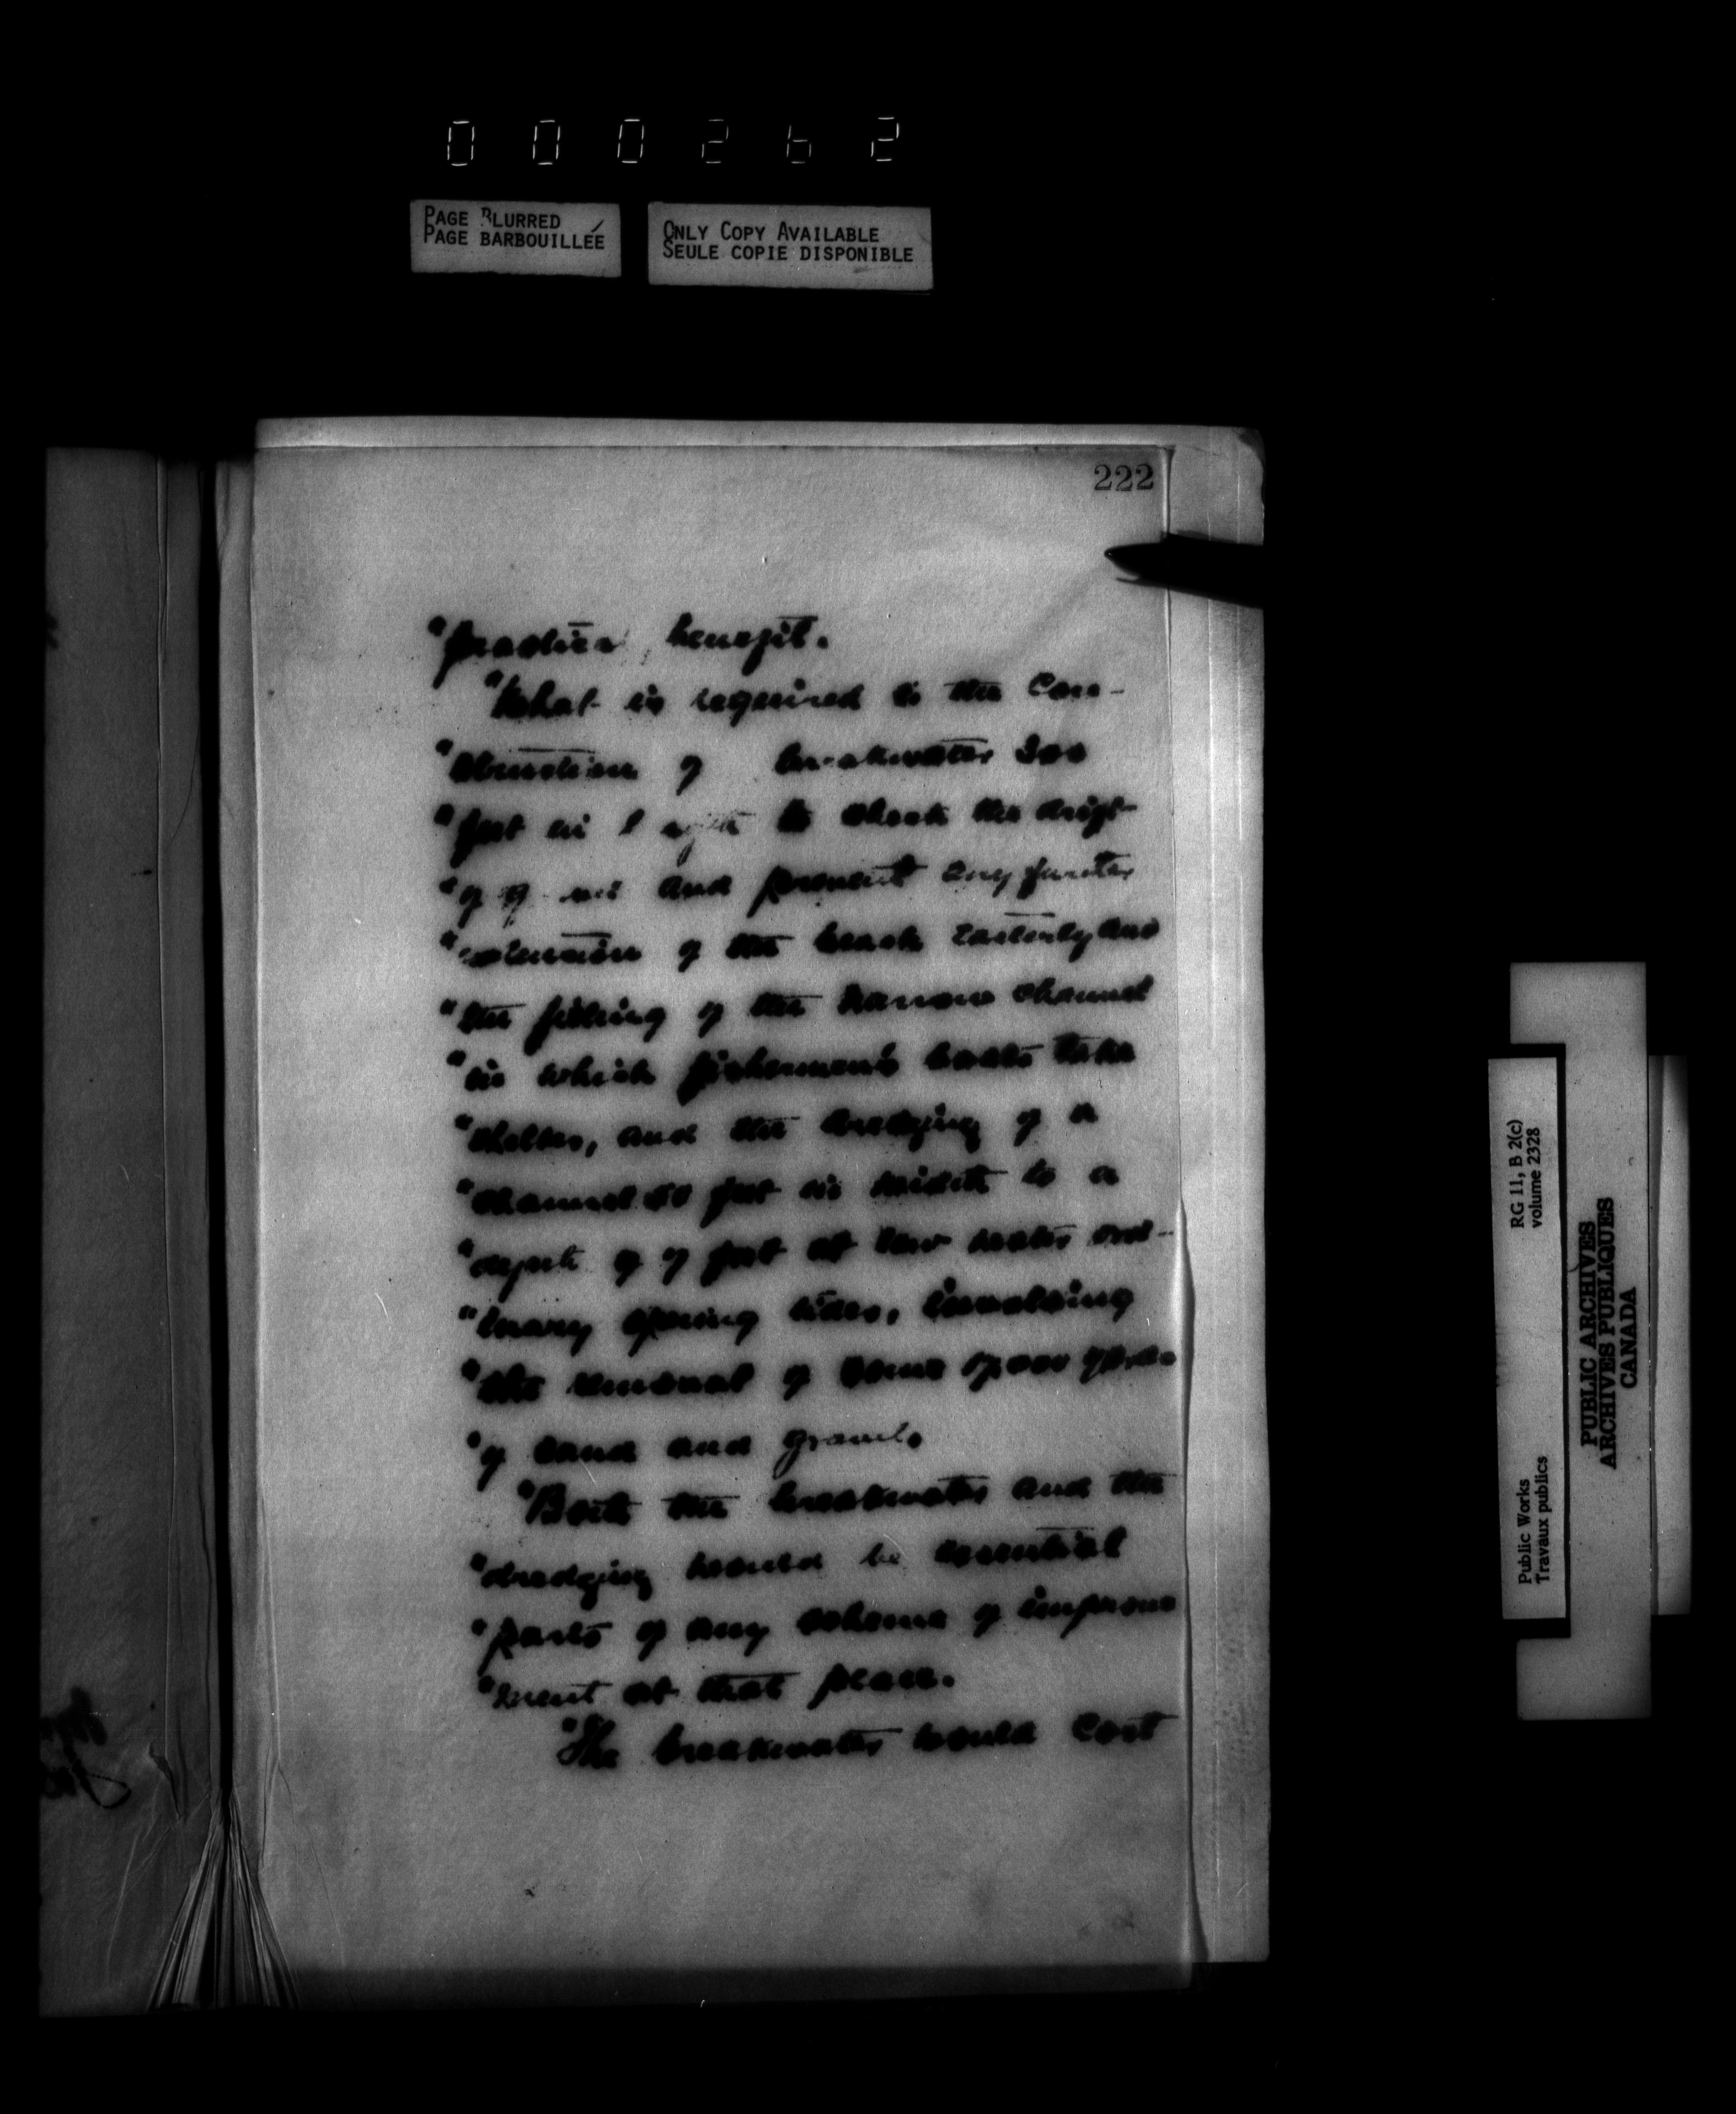 000262
PAGE BLURRED
PAGE BARBOUILLÉE
ONLY COPY AVAILABLE
SEULE COPIE DISPONIBLE
222
" benefit.
"What is required is the Con-
"struction of breakwater
"feet in to check the drift
"of and prevent any further
"extension of the beach Easterly and
"the filling of the narrow channel
"in which fishermen's boats take
"shelter, and the dredging of a
"channel feet in width to a
"depth of feet at low water ord-
"inary spring tides, involving
"the removal of some yards
"of sand and gravel.
"Both the breakwater and the
"dredging would be essential
"parts of any scheme of improve
"ment at that place.
"The breakwater would cost
RG 11, B 2(c)
volume 2328
Public Works
Travaux publics
PUBLIC ARCHIVES
ARCHIVES PUBLIQUES
CANADA